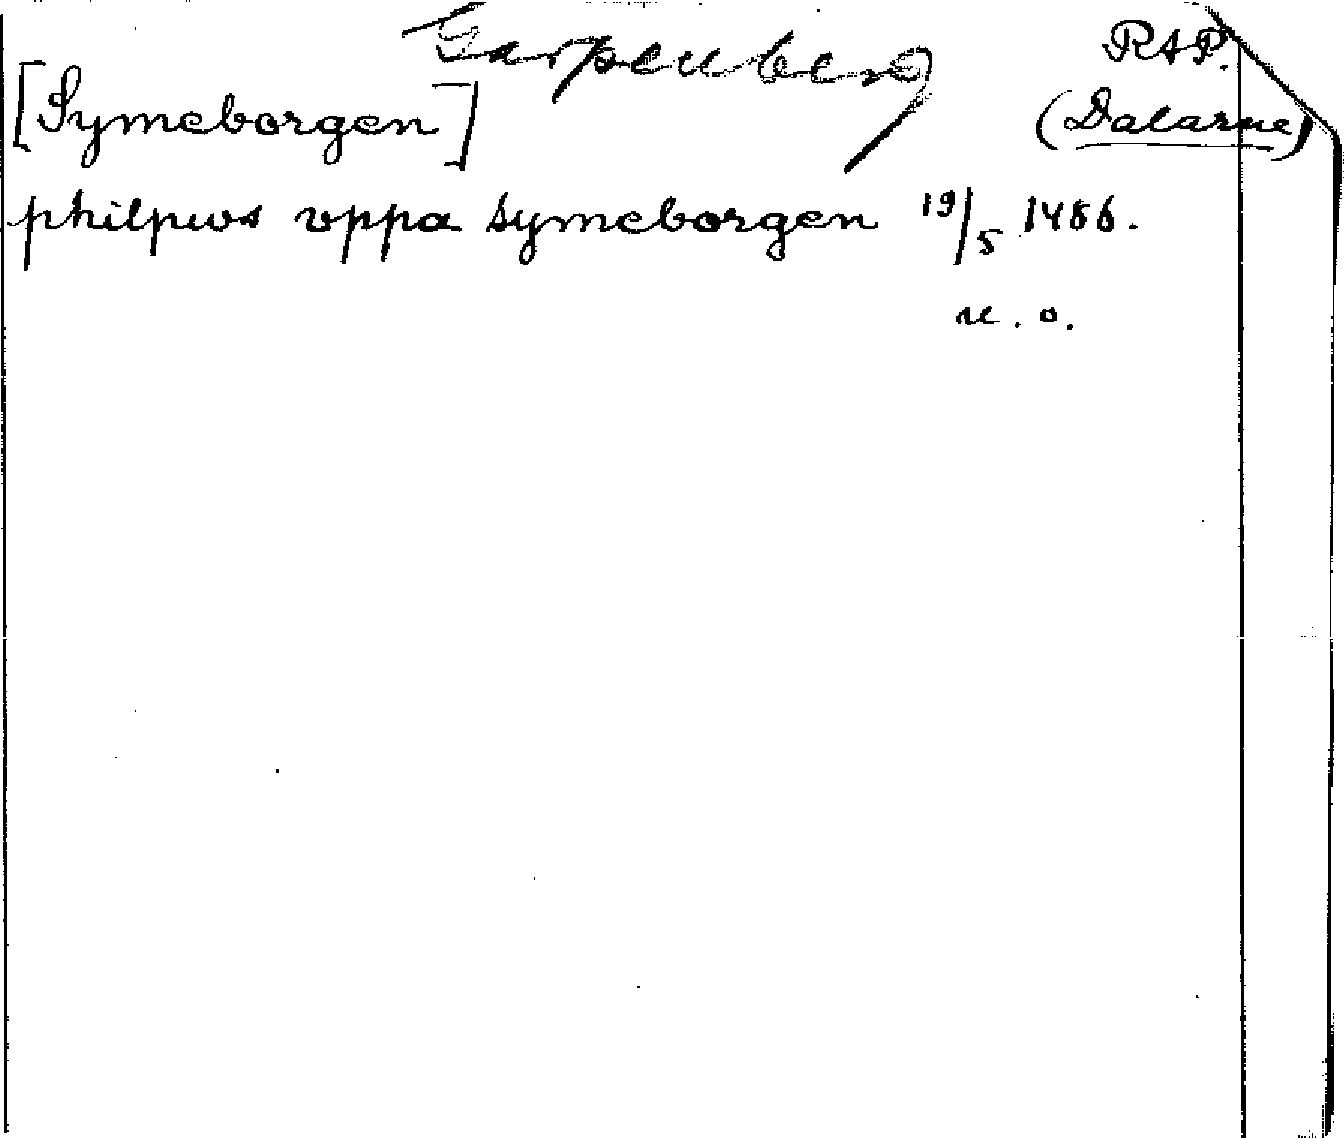 Garpenberg
RAP.
[Symeborgen]
(Dalarne)
philpws vppa symeborgen 19/5 1486.
u. o.